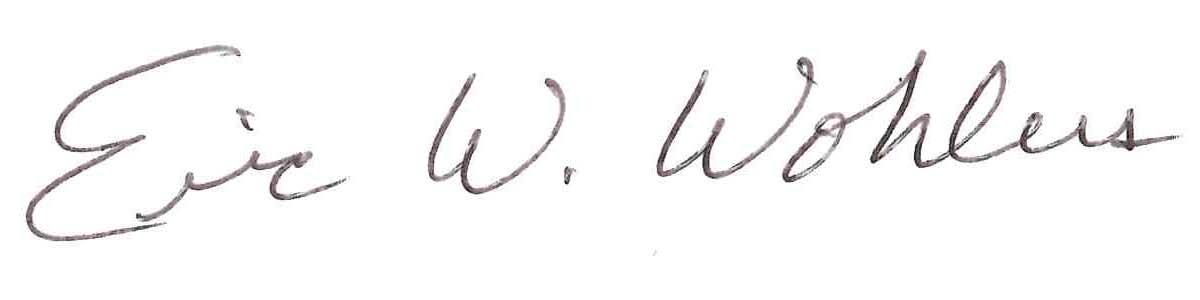 Eric W. Wohlers